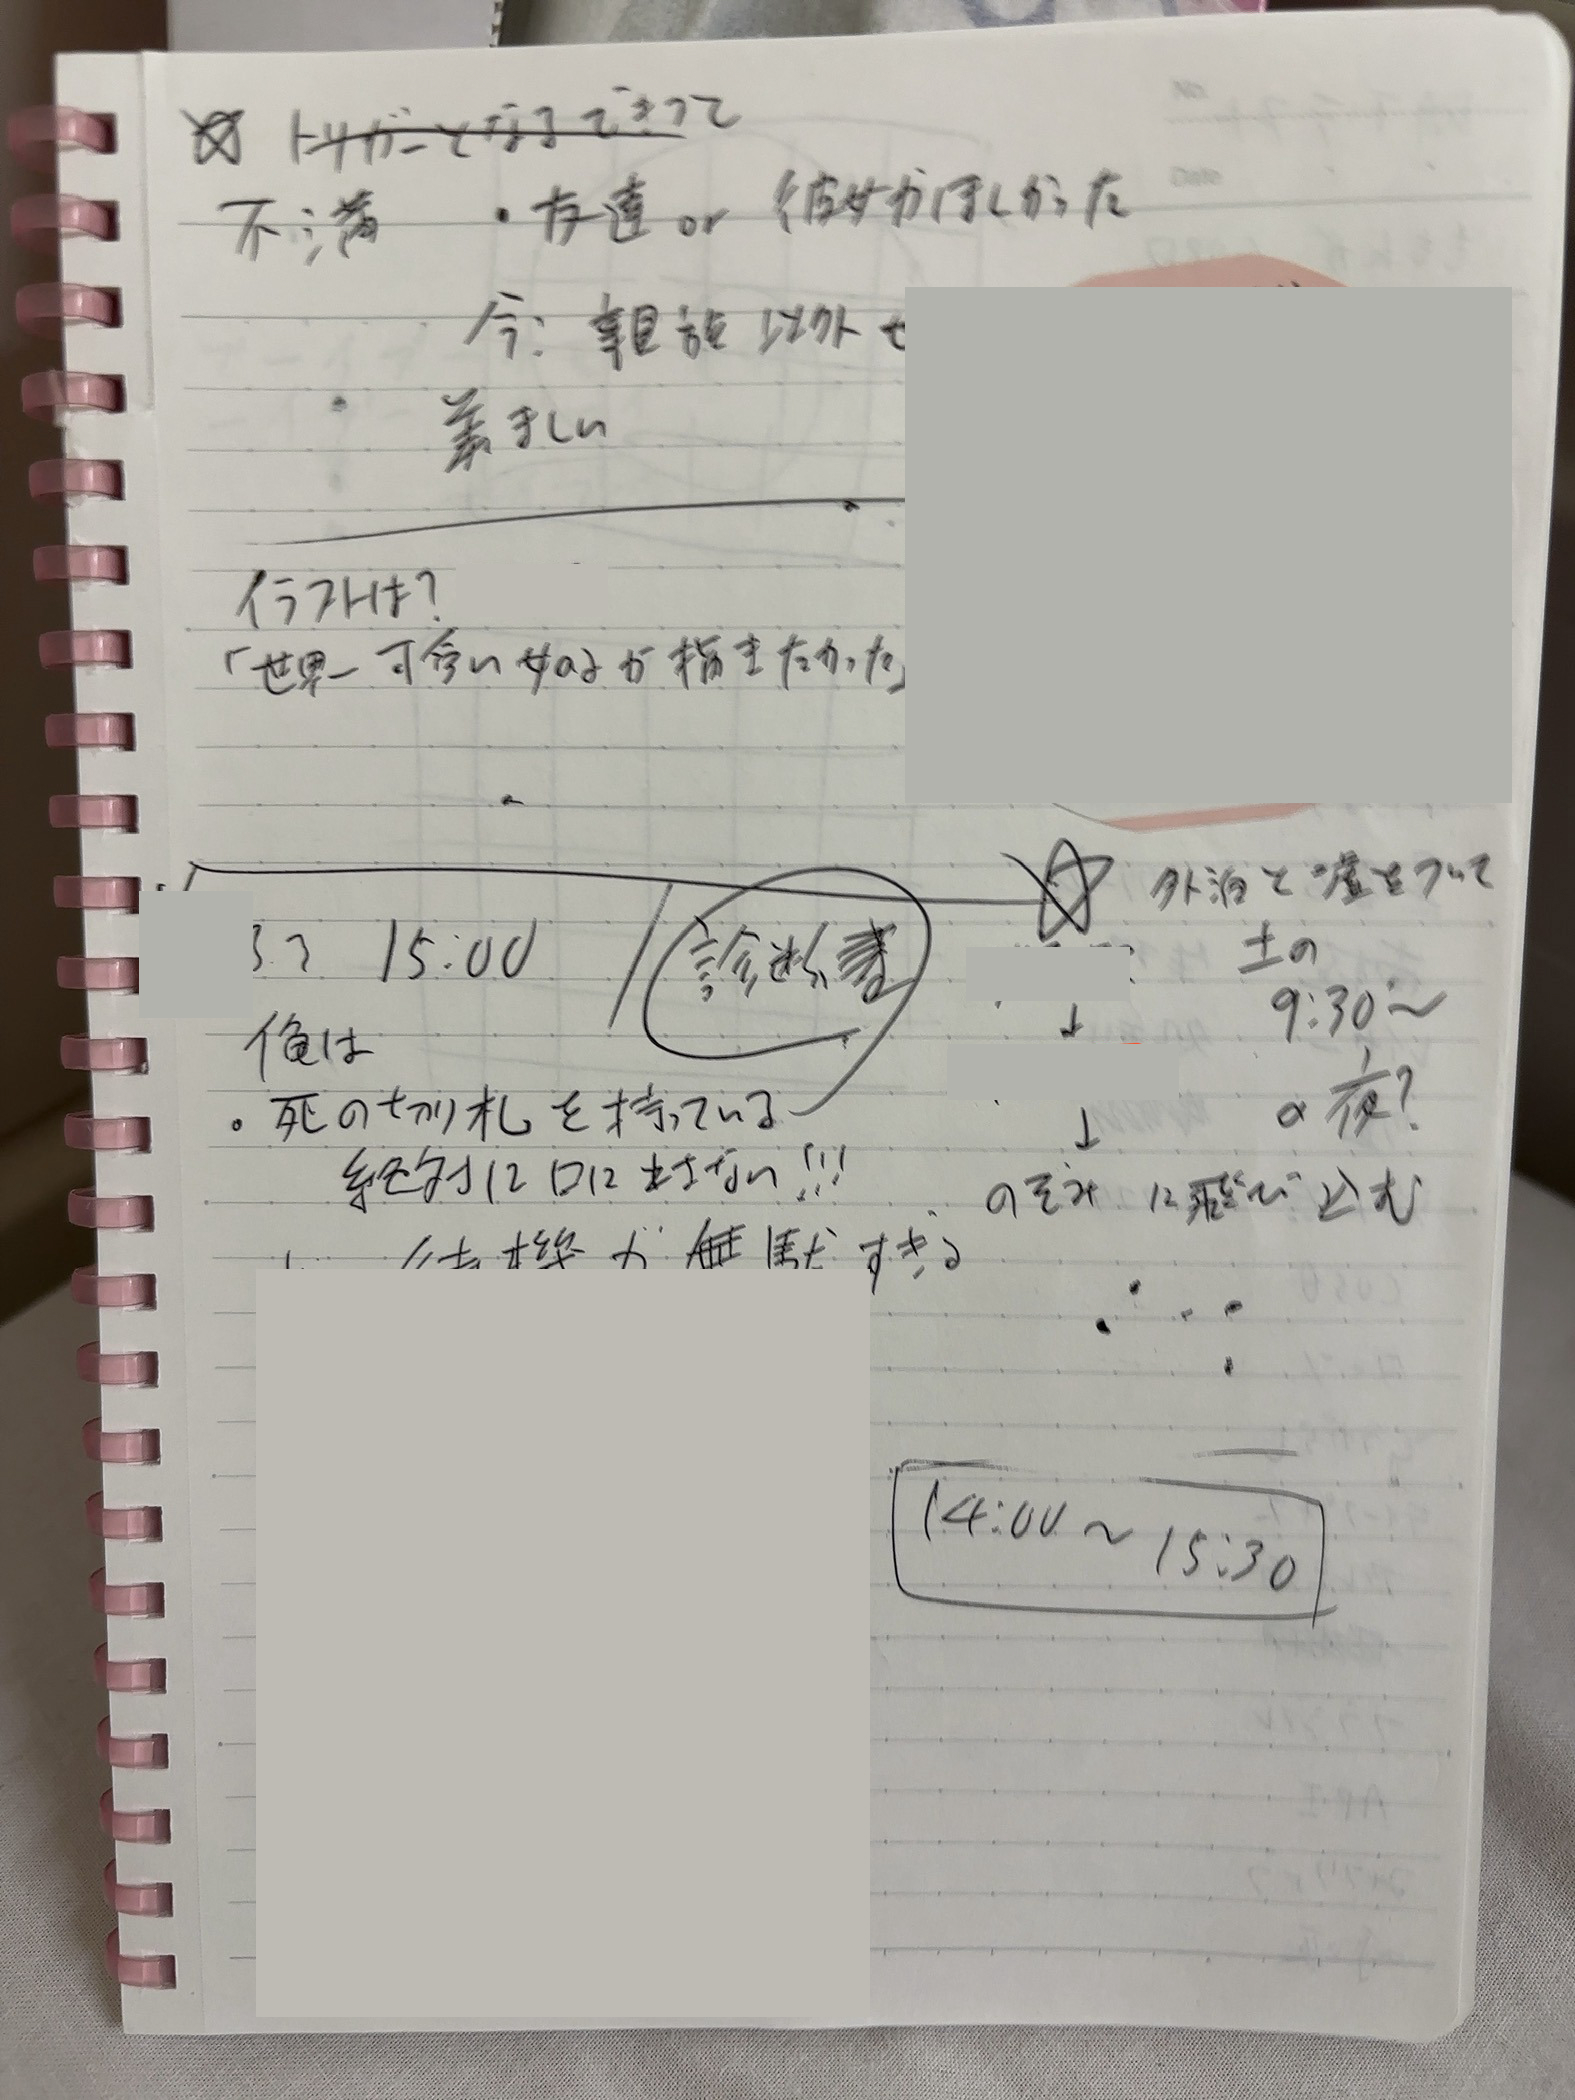 トリガーとなるできごとって
不満 ・友達 or 彼女がほしかった
今: 親族以外
羨ましい
イラストは?
「世界一可愛い女の子が描きたかった」
15:00
診断書
俺は
・死の切り札を持っている
絶対に口に出さない!!!
待機が無駄すぎる
外泊と嘘をついて
土の
9:30〜
の夜?
↓
↓
のぞみに飛び込む
14:00〜15:30